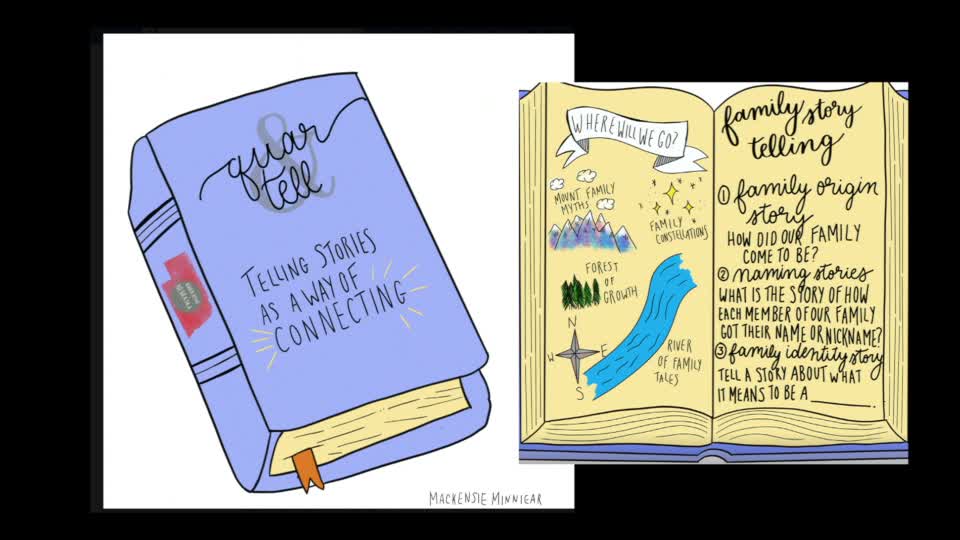 quar
&
tell
TELLING STORIES
AS A WAY OF
CONNECTING
MACKENSIE MINNIEAR
WHERE WILL WE GO?
MOUNT FAMILY
MYTHS
FAMILY
CONSTELLATIONS
FOREST
OF
GROWTH
N
W E
S
RIVER
OF FAMILY
TALES
family story
telling
① family origin
story
HOW DID OUR FAMILY
COME TO BE?
② naming stories
WHAT IS THE STORY OF HOW
EACH MEMBER OF OUR FAMILY
GOT THEIR NAME OR NICKNAME?
③ family identity story
TELL A STORY ABOUT WHAT
IT MEANS TO BE A ________.